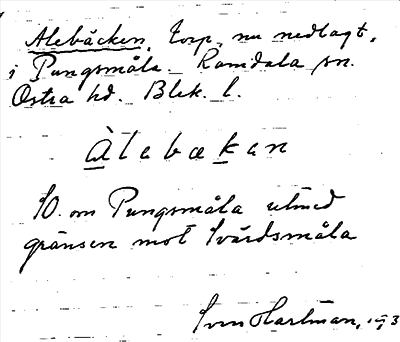 Alebäcken, Torp, nu nedlagt,
i Pungsmåla. Ramdala sn.
Östra hd. Blek. l.
Àlebækan
SO. om Pungsmåla utmed
gränsen mot Svärdsmåla
Sven Hartman,